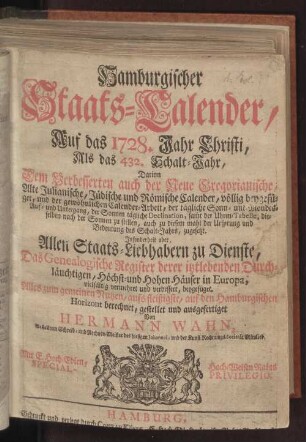 Hamburgischer
Staats-Calender,
Auf das 1728. Jahr Christi,
Als das 432. Schalt-Jahr,
Darinn
Dem Verbesserten auch der Neue Gregorianische,
Alte Julianische, Jüdische und Römische Calender, völlig
und der gewöhnlichen Calender-Arbeit, der tägliche
Auf- und Untergang, der Sonnen tägliche Declination, samt der Uhren-Tabelle, die
selben nach der Sonnen zu stellen, auch zu dessen mehr der Ursprung und
Bedeutung des Schalt-Jahrs, zugesetzt.
Insonderheit aber,
Allen Staats-Liebhabern zu Dienste,
Das Genealogische Register derer itztlebenden Durch-
läuchtigen, Höchst- und Hohen Häuser in Europa,
vielfältig vermehret und verbessert, beygefüget.
Alles zum gemeinen Nutzen, aufs fleißigste, auf den Hamburgischen
Horizont berechnet, gestellet und ausgefertiget
Von
HERMANN WAHN,
Mit E. Hoch-Edlen,
SPECIAL-
Hoch-Weisen Rahts
PRIVILEGIO.
HAMBURG,